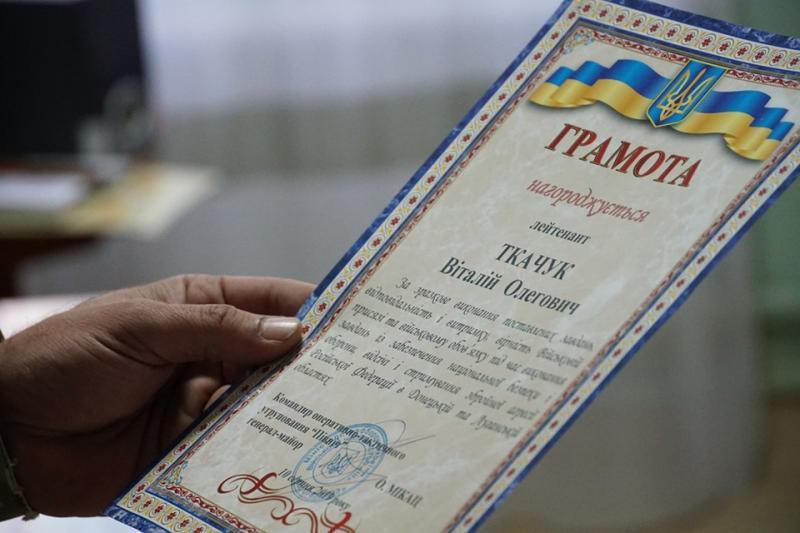 ГРАМОТА
нагороджується
лейтенант
ТКАЧУК
Віталій Олегович
За зразкове виконання поставлених завдань,
відповідальність і витримку, вірність військовій
присязі та військовому обов'язку під час виконання
завдань із забезпечення національної безпеки і
оборони, відсічі і стримування збройної агресії
Російської Федерації в Донецькій та Луганській
областях.
Командир оперативно-тактичного
угруповання "Північ"
генерал-майор
О. МІКАЦ
10 серпня року